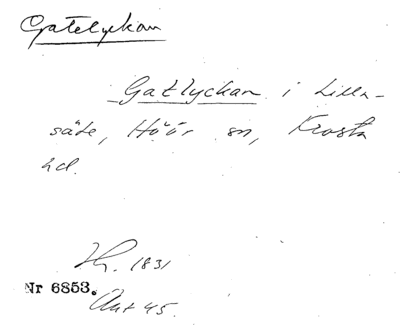 Gatelyckan
Gatlyckan i Lilla-
säte, Höör sn, Frosta
hd.
1831
Nr 6853.
Akt 45.